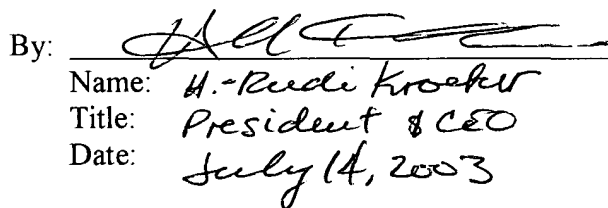 By:
Name: H.-Rudi Kroeker
Title: President & CEO
Date: July 14, 2003